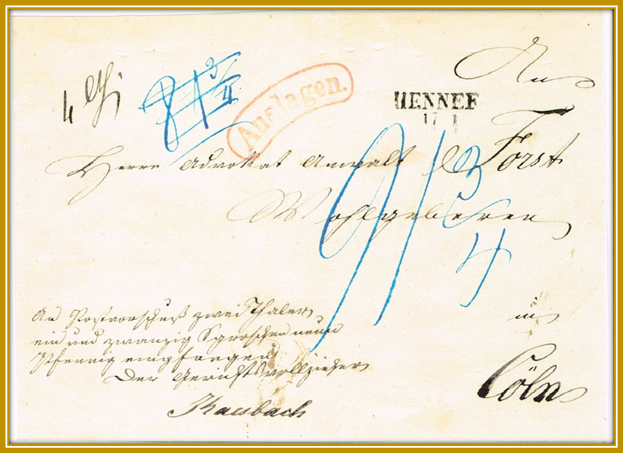 An
4 
8 1 3/4
Auslagen.
HENNEF
17 1
Herrn Advokat Anwalt Forst
Wohlgeboren
9/ 3/4
in
Cöln
An Postvorschuß zwei Thaler
ein und zwanzig Sgroschen neun
Pfennig empfangen
Der Gerichtsvollzieher